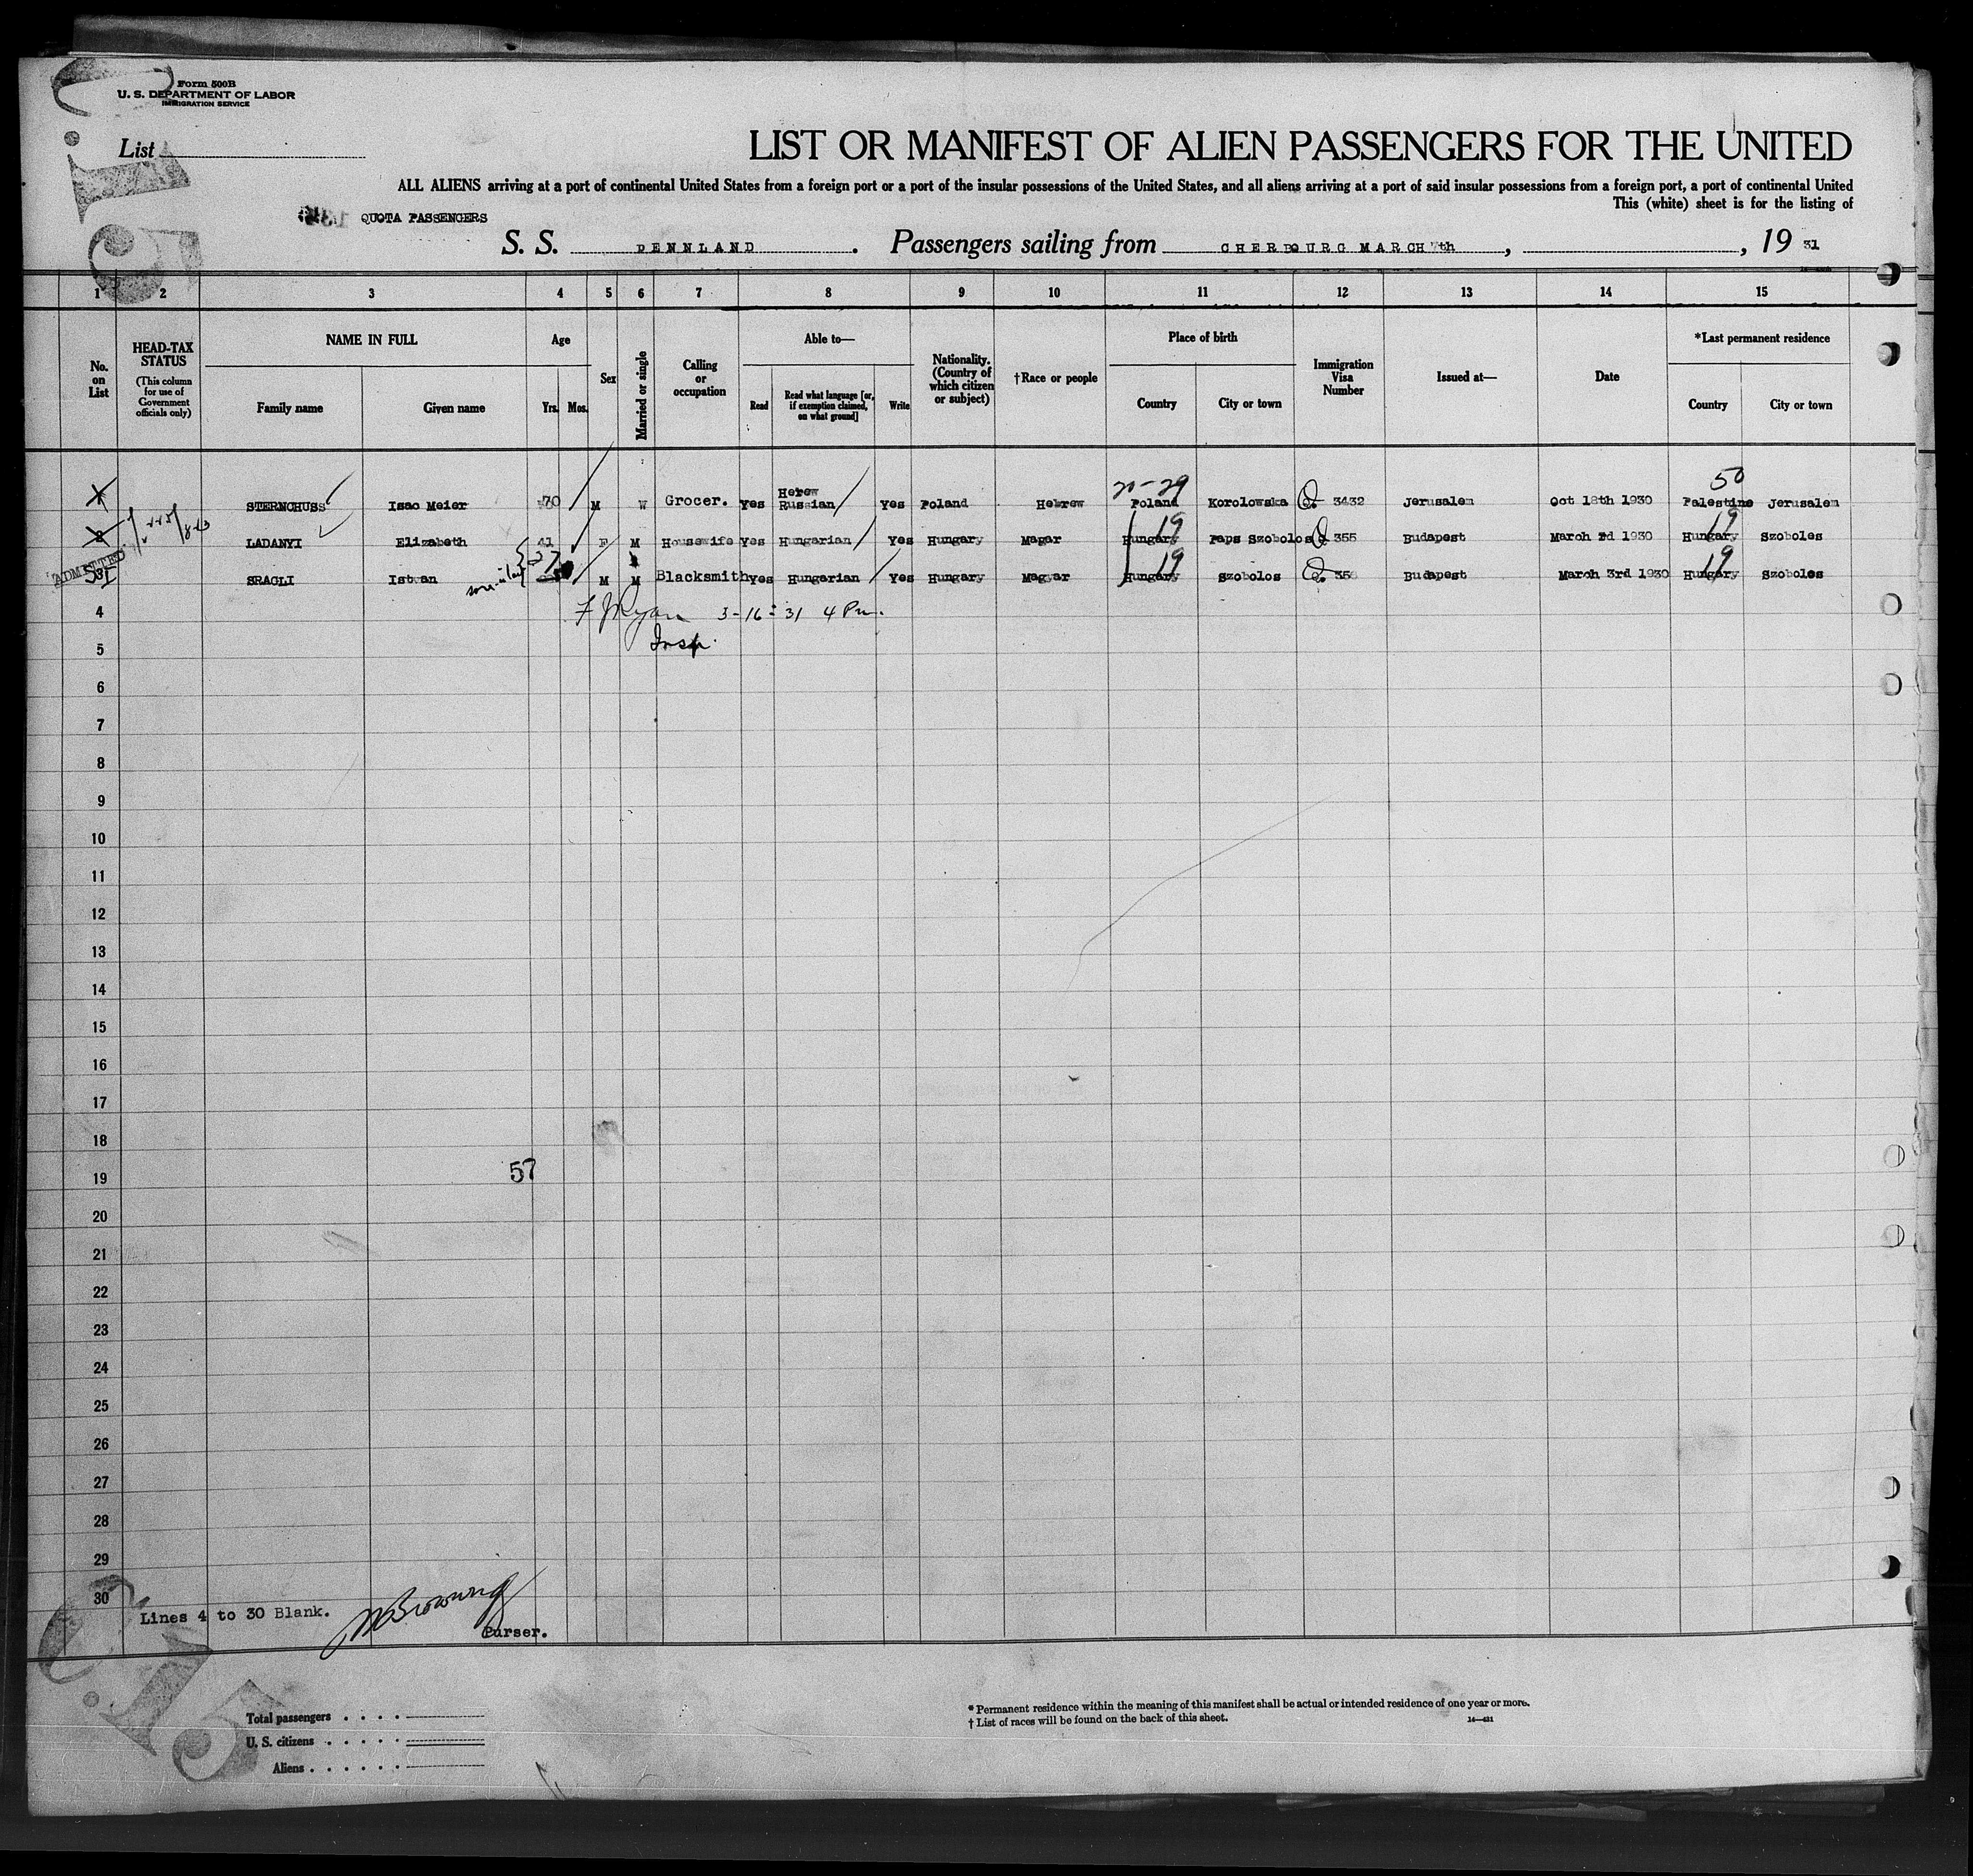 Form 500B
U. S. DEPARTMENT OF LABOR
IMMIGRATION SERVICE
List
LIST OR MANIFEST OF ALIEN PASSENGERS FOR THE UNITED
ALL ALIENS arriving at a port of continental United States from a foreign port or a port of the insular possessions of the United States, and all aliens arriving at a port of said insular possessions from a foreign port, a port of continental United
This (white) sheet is for the listing of
QUOTA PASSENGERS
S. S. PENNLAND. Passengers sailing from CHERBOURG MARCH 7th, , 19 31
1 2 3 4 5 6 7 8 9 10 11 12 13 14 15
No. on List
HEAD-TAX STATUS
(This column for use of Government officials only)
NAME IN FULL
Family name Given name
Age
Yrs. Mos.
Sex
Married or single
Calling or occupation
Able to—
Read Read what language [or, if exemption claimed, on what ground] Write
Nationality. (Country of which citizen or subject)
†Race or people
Place of birth
Country City or town
Immigration Visa Number
Issued at—
Date
*Last permanent residence
Country City or town
20-29 50
1 STERNCHUSS Isac Meier 70 M W Grocer. Yes Herew Russian Yes Poland Hebrew Poland Korolowska Q. 3432 Jerusalem Oct 18th 1930 Palestine Jerusalem
19 19
2 LADANYI Elizabeth 41 F M Housewife Yes Hungarian Yes Hungary Magar Hungary Paps Szobolos Q 355 Budapest March 2d 1930 Hungary Szoboles
ADMITTED
27 19 19
SRAGLI Istvan M M Blacksmith Yes Hungarian Yes Hungary Magyar Hungary Szobolos Q. 356 Budapest March 3rd 1930 Hungary Szoboles
4 F J Ryan 3-16-31 4 Pm.
Insp.
5
6
7
8
9
10
11
12
13
14
15
16
17
18
19 57
20
21
22
23
24
25
26
27
28
29
30
Lines 4 to 30 Blank.
Purser.
Total passengers
U. S. citizens
Aliens
* Permanent residence within the meaning of this manifest shall be actual or intended residence of one year or more.
† List of races will be found on the back of this sheet.
14—431